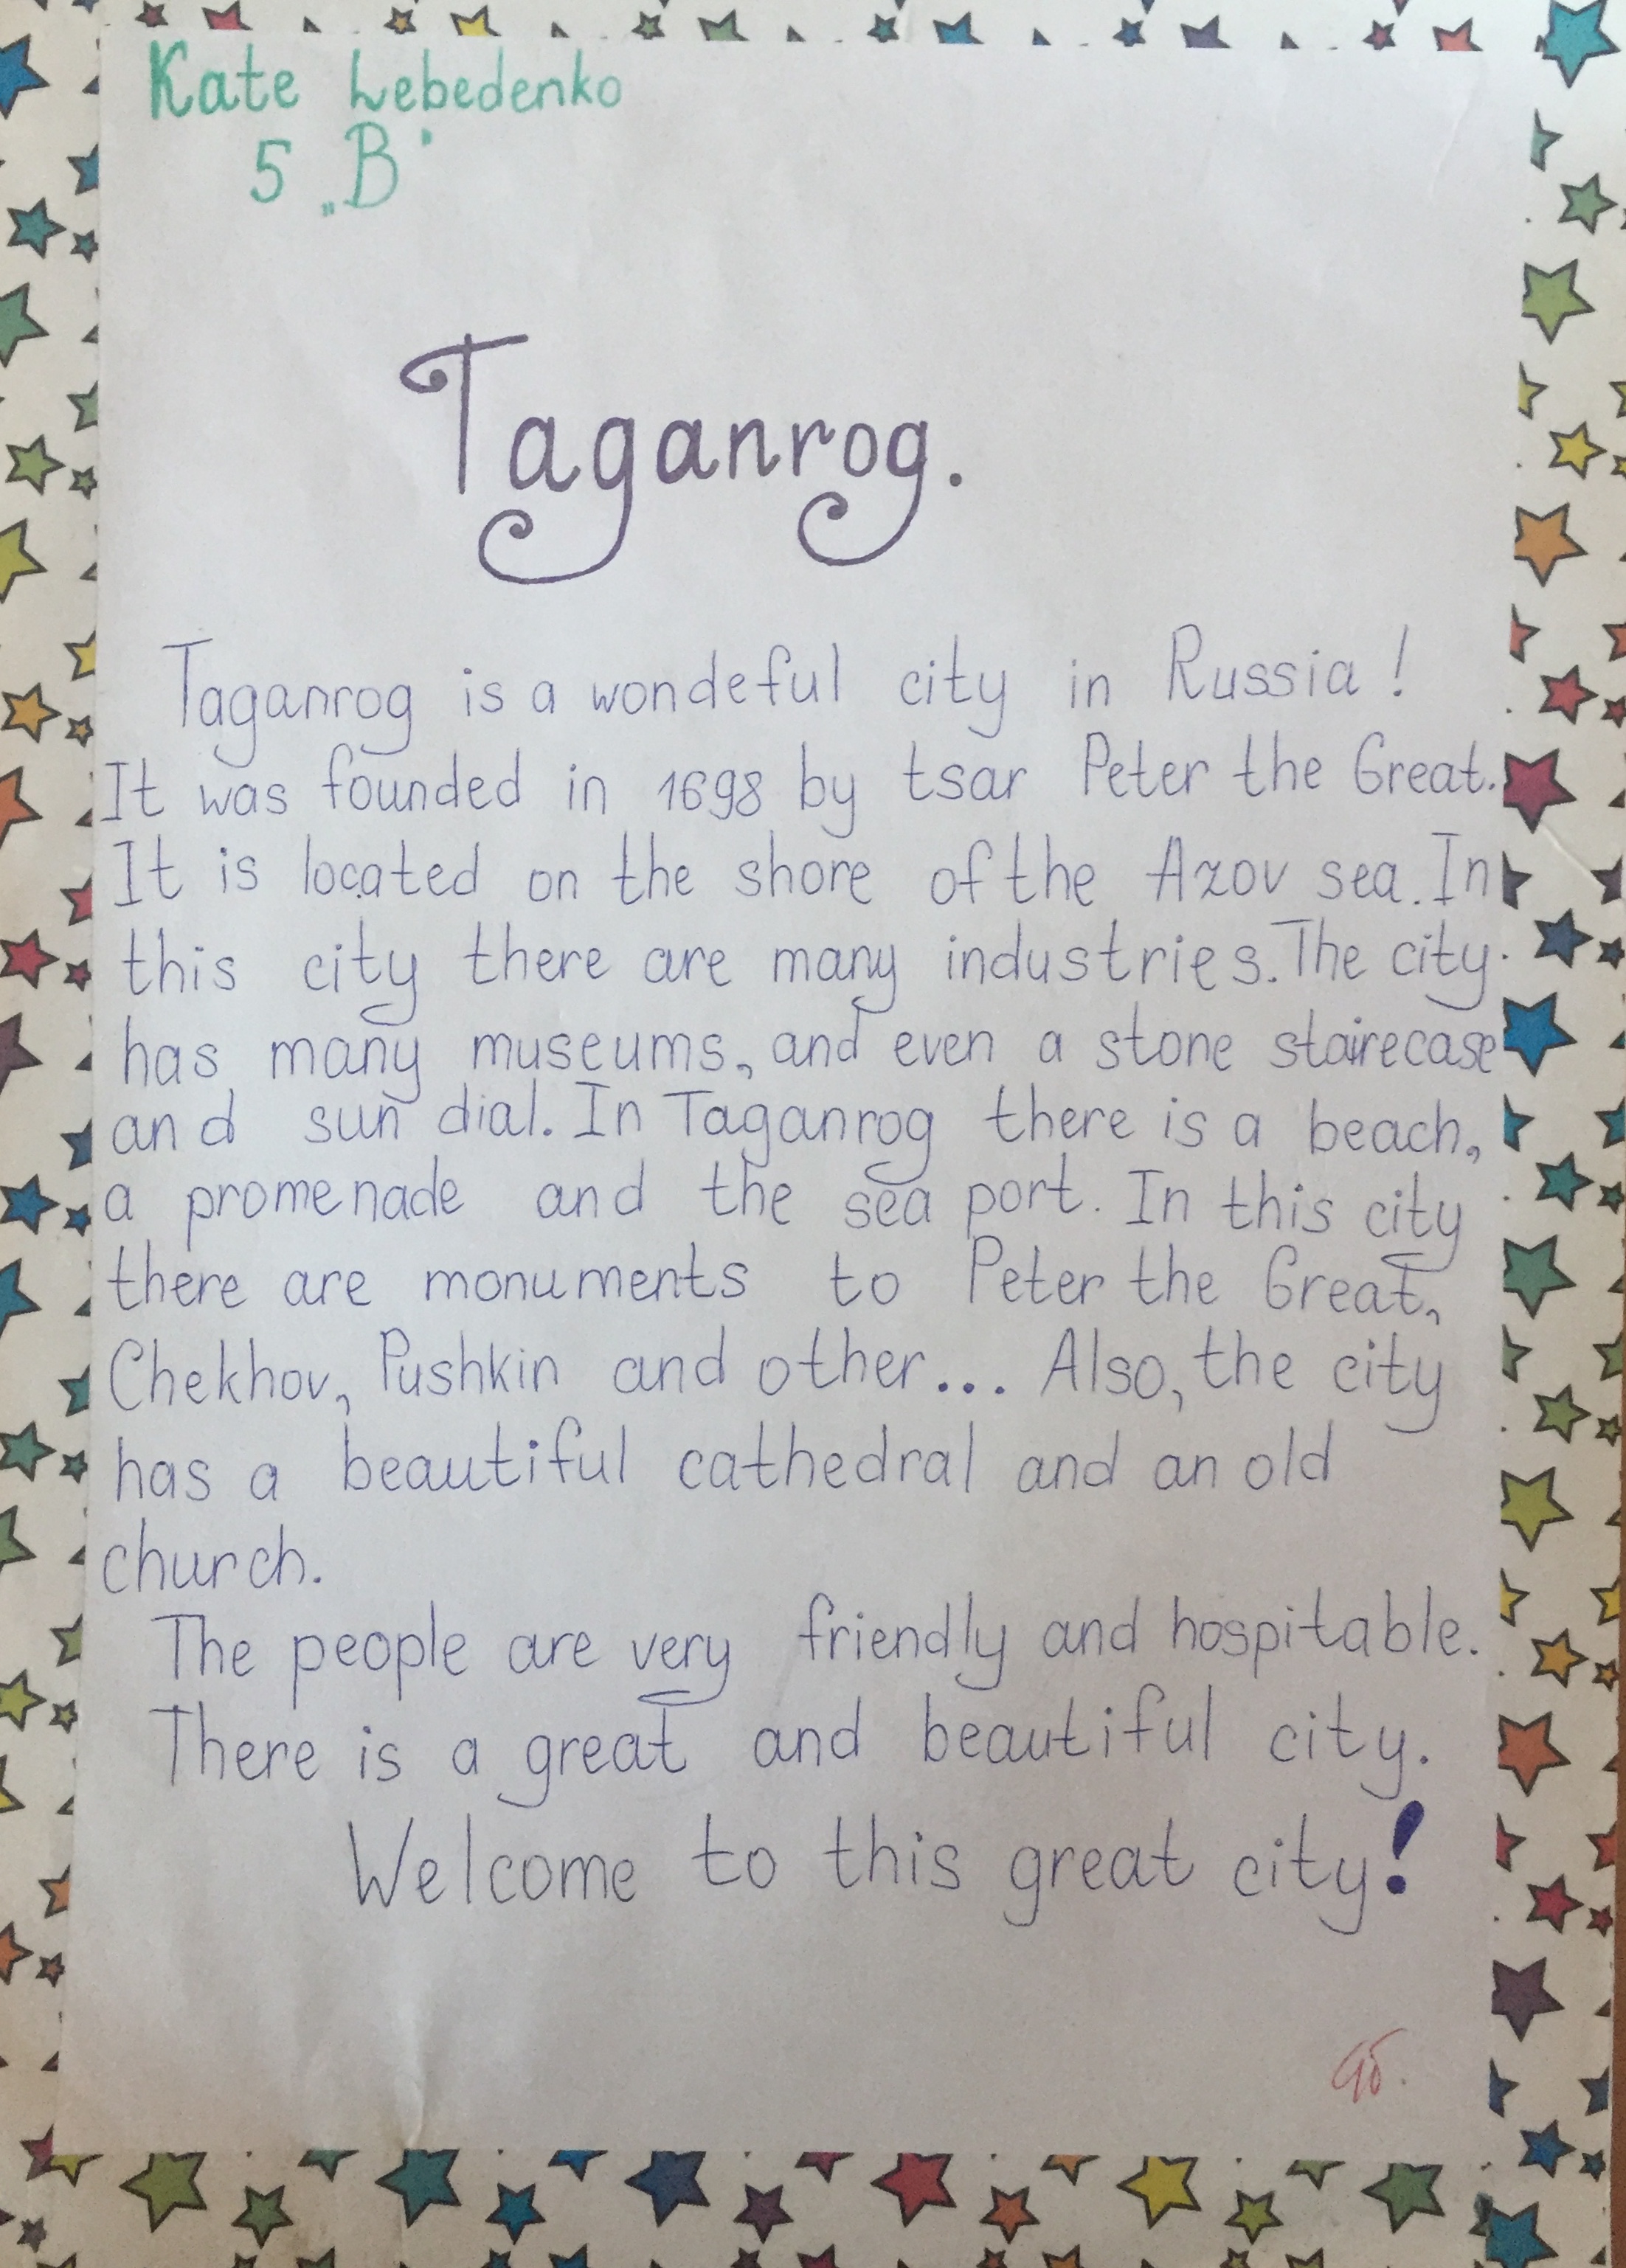 Kate Lebedenko
5 „B"
Taganrog.
Taganrog is a wondeful city in Russia!
It was founded in 1698 by tsar Peter the Great.
It is located on the shore of the Azov sea. In
this city there are many industries. The city
has many museums, and even a stone stairecase
and sun dial. In Taganrog there is a beach,
a promenade and the sea port. In this city
there are monuments to Peter the Great,
Chekhov, Pushkin and other... Also, the city
has a beautiful cathedral and an old
church.
The people are very friendly and hospitable.
There is a great and beautiful city.
Welcome to this great city!